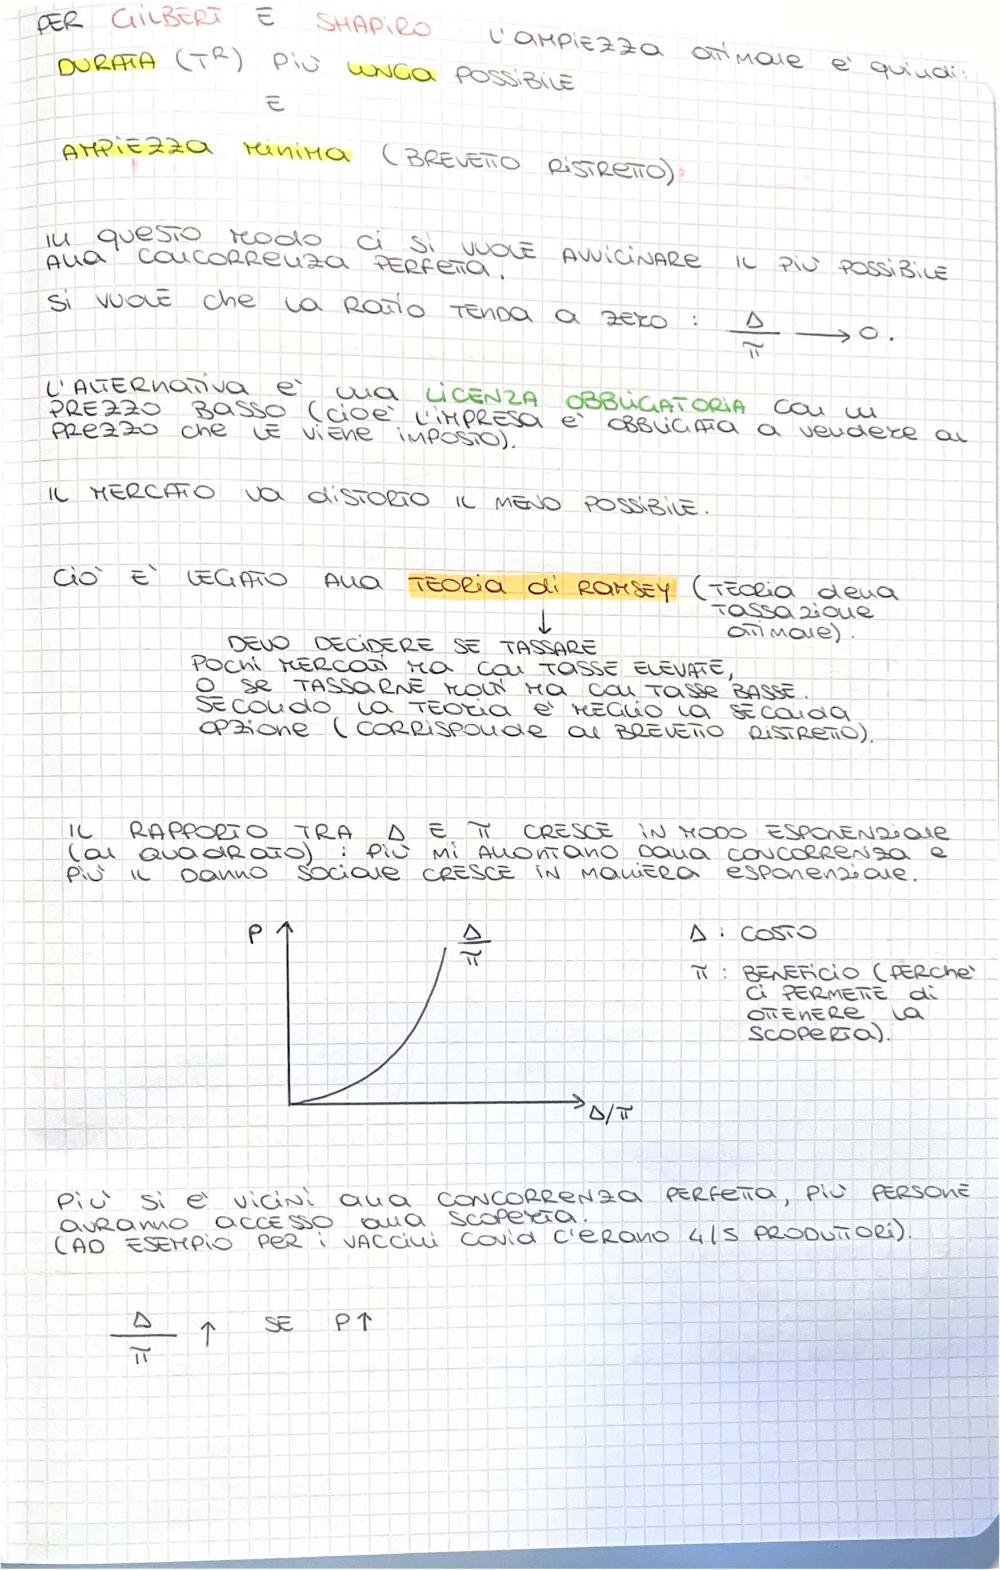 PER GILBERT E SHAPIRO L'AMPIEZZA OTTIMALE E' QUINDI:
DURATA (TR) PIÙ LUNGA POSSIBILE
E
AMPIEZZA MINIMA (BREVETTO RISTRETTO).
IN QUESTO MODO CI SI VUOLE AVVICINARE IL PIÙ POSSIBILE
ALLA CONCORRENZA PERFETTA.
SI VUOLE CHE LA RATIO TENDA A ZERO : Δ/π → 0.
L'ALTERNATIVA E' UNA LICENZA OBBLIGATORIA CON UN
PREZZO BASSO (CIOE' L'IMPRESA E' OBBLIGATA A VENDERE AL
PREZZO CHE LE VIENE IMPOSTO).
IL MERCATO VA DISTORTO IL MENO POSSIBILE.
CIÒ E' LEGATO ALLA TEORIA DI RAMSEY (TEORIA DELLA
TASSAZIONE
OTTIMALE).
↓
DEVO DECIDERE SE TASSARE
POCHI MERCATI MA CON TASSE ELEVATE,
O SE TASSARNE MOLTI MA CON TASSE BASSE.
SECONDO LA TEORIA E' MEGLIO LA SECONDA
OPZIONE (CORRISPONDE AL BREVETTO RISTRETTO).
IL RAPPORTO TRA Δ E π CRESCE IN MODO ESPONENZIALE
(AL QUADRATO) : PIÙ MI ALLONTANO DALLA CONCORRENZA E
PIÙ IL DANNO SOCIALE CRESCE IN MANIERA ESPONENZIALE.
P
Δ/π
Δ/π
Δ : COSTO
π : BENEFICIO (PERCHE'
CI PERMETTE DI
OTTENERE LA
SCOPERTA).
PIÙ SI E' VICINI ALLA CONCORRENZA PERFETTA, PIÙ PERSONE
AVRANNO ACCESSO ALLA SCOPERTA.
(AD ESEMPIO PER I VACCINI COVID C'ERANO 4/5 PRODUTTORI).
Δ/π ↑ SE P↑